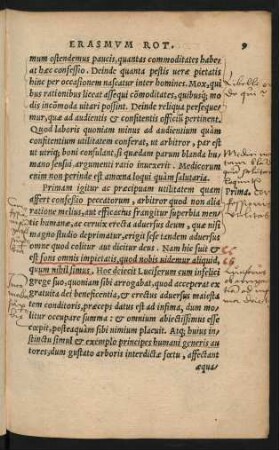 ERASMVM ROT. 9
mum ostendemus paucis, quantas commoditates habe
at hæc confessio. Deinde quanta pestis ueræ pietatis
hinc per occasionem nascatur inter homines. Mox, qui
bus rationibus liceat assequi cōmoditates, quibusq; mo
dis incōmoda uitari possint. Deinde reliqua perseque
mur, quæ ad audientis & confitentis officiū pertinent.
Quod laboris quoniam minus ad audientium quàm
confitentium utilitatem conferat, ut arbitror, par
est ut uiriq; boni consulant, si quædam parum blanda hu
mano sensui, argumenti ratio inuexerit. Medicorum
enim non perinde est amœna loqui quàm salutaria.
Primam igitur ac præcipuam utilitatem quam
affert confessio peccatorum, arbitror quod non alia
ratione melius, aut efficacius frangitur superbia men
tis humanæ, ac ceruix erecta aduersus deum, quæ nisi
magno studio deprimatur, erigit sese tandem aduersus
omne quod colitur aut dicitur deus. Nam hic fuit &
est fons omnis impietatis, quod nobis uidemur aliquid,
quum nihil simus. Hoc deiecit Luciferum cum infelici
grege suo, quoniam sibi arrogabat, quod acceperat ex
gratuita dei beneficentia, & erectus aduersus maiesta
tem conditoris, præceps datus est ad infima, dum mo
litur occupare summa: & omnium abiectissimus esse
cœpit, posteaquàm sibi nimium placuit. Atq; huius in
stinctu simul & exemplo principes humani generis au
tores, dum gustato arboris interdictæ fœtu, affectant
æqua
Prima.